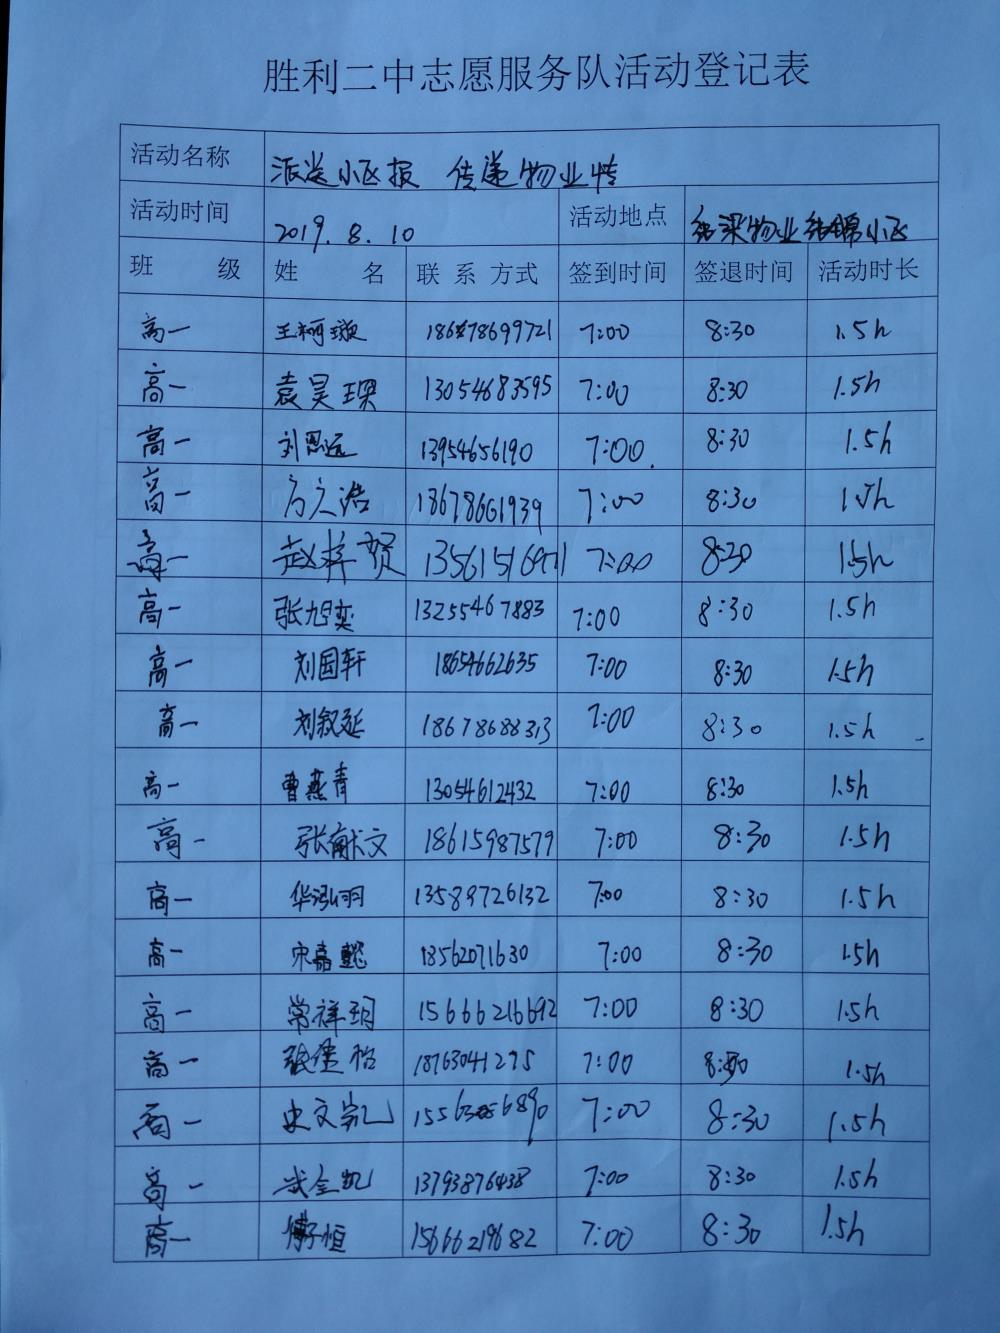 胜利二中志愿服务队活动登记表
活动名称 派送小区报 传递物业情
活动时间 2019.8.10 活动地点 物业 小区
班 级 姓 名 联系方式 签到时间 签退时间 活动时长
高一 王柯璇 18678699721 7:00 8:30 1.5h
高一 袁昊 13054683595 7:00 8:30 1.5h
高一 刘恩远 13954656190 7:00 8:30 1.5h
高一 方文浩 18678661939 7:00 8:30 1.5h
高一 赵梓贺 7:00 8:30 1.5h
高一 张旭奕 13255467883 7:00 8:30 1.5h
高一 刘国轩 18654662635 7:00 8:30 1.5h
高一 刘叙延 18678688313 7:00 8:30 1.5h
高一 曹燕青 13054612432 7:00 8:30 1.5h
高一 张献文 18615987579 7:00 8:30 1.5h
高一 华泓羽 13589726132 7:00 8:30 1.5h
高一 宋嘉懿 18562071630 7:00 8:30 1.5h
高一 常祥玥 15666216692 7:00 8:30 1.5h
高一 18763041295 7:00 8:30 1.5h
高一 史文凯 7:00 8:30 1.5h
高一 武金凯 13793876438 7:00 8:30 1.5h
高一 傅子恒 15666219682 7:00 8:30 1.5h